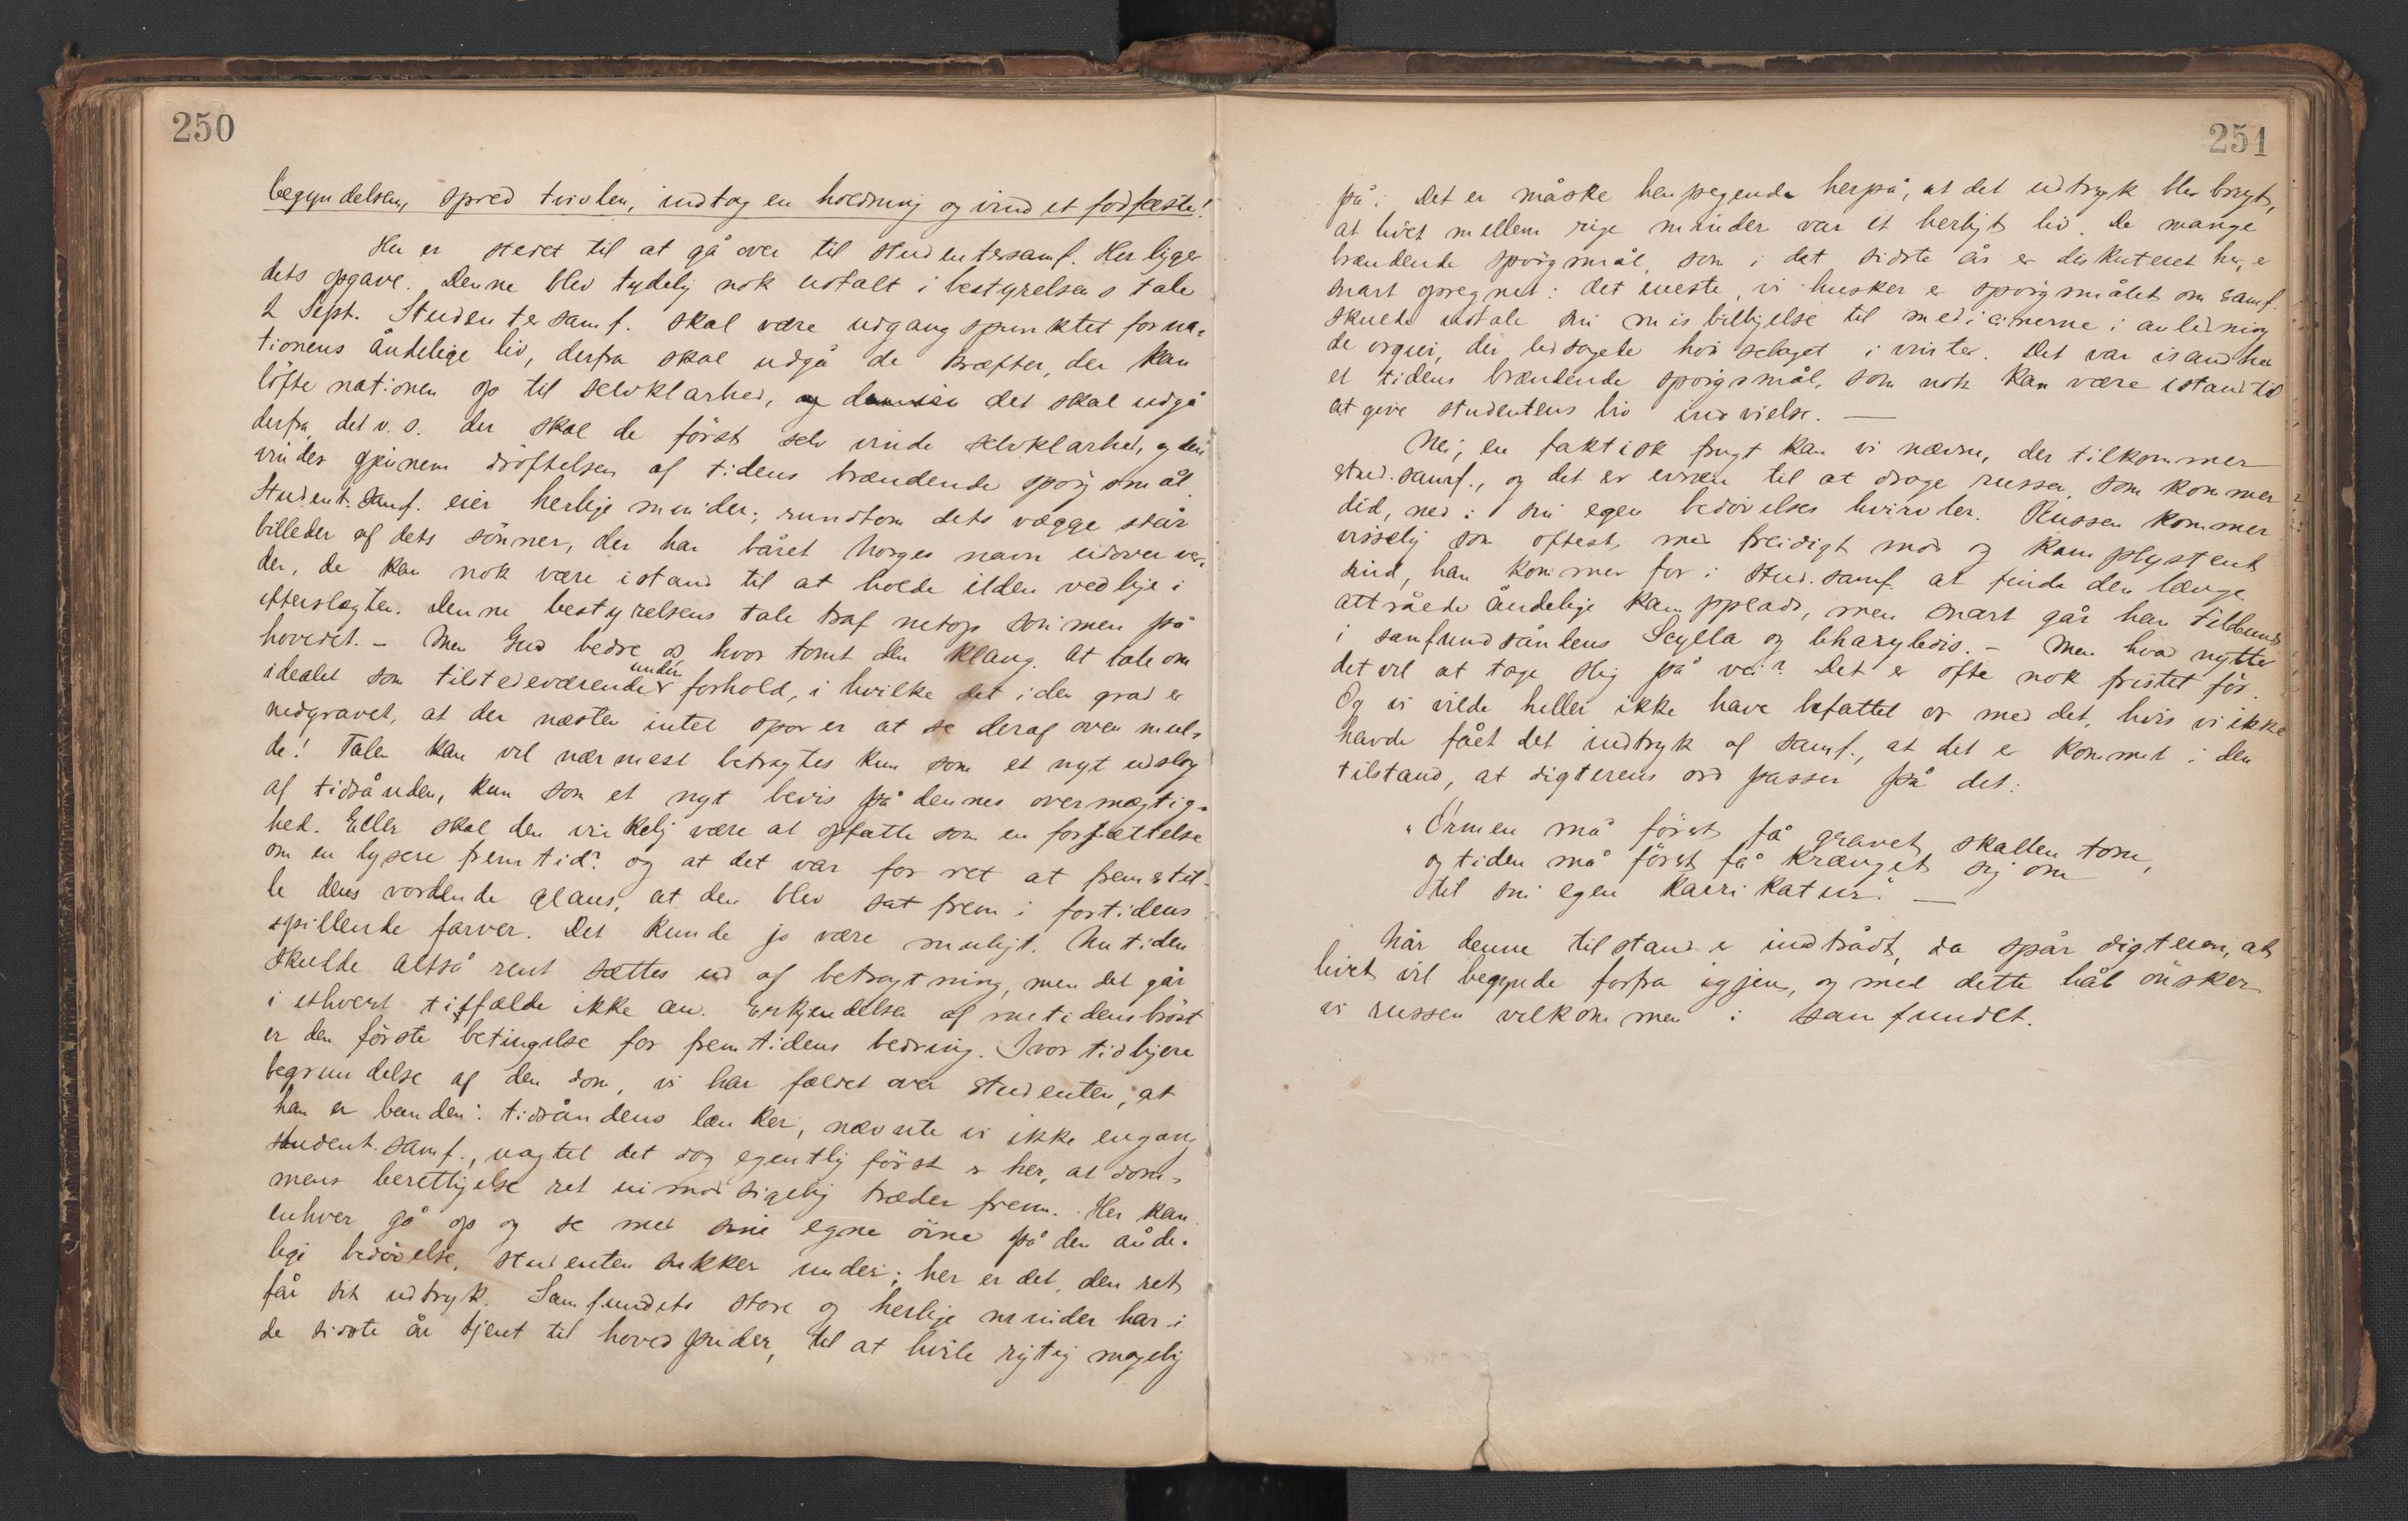 250
begyndelsen, spred tvivlen, indtag en holdning og vind et fodfæste!
Her er stedet til at gå over til studentersamf. Her ligger
dets opgave. Denne blev tydelig nok udtalt i bestyrelsens tale
2 Sept. Studentersamf. skal være udgangspunktet for na-
tionens åndelige liv, derfra skal udgå de kræfter, der kan
löfte nationen op til selvklarhed, og det skal udgå
derfra, det v. s. der skal de först selv vinde selvklarhed, og den
vindes gjennem dröftelsen af tidens brændende spörgsmål.
Student. Samf. eier herlige minder; rundtom dets vægge står
billeder af dets sönner, der har båret Norges navn udover ver-
den, de kan nok være istand til at holde ilden vedlige i
efterslægten. Denne bestyrelsens tale traf netop sömmen på
hovedet. – Men Gud bedre os hvor tomt den klang. At tale om
idealet som tilstedeværende under forhold, i hvilke det i den grad er
nedgravet, at der næsten intet spor er at se deraf oven mul-
de! Talen kan vel nærmest betragtes kun som et nyt udslag
af tidsånden, kun som et nyt bevis på dennes overmægtig-
hed. Eller skal den virkelig være at opfatte som en forjættelse
om en lysere fremtid? og at det var for ret at fremstil-
le dens vordende glans, at den blev sat frem i fortidens
spillende farver. Det kunde jo være muligt. Nutiden
skulde altså rent sættes ud af betragtning, men det går
i ethvert tilfælde ikke an. Erkjendelsen af nutidens bröst
er den förste betingelse for fremtidens bedring. I vor tidligere
begrundelse af den dom, vi har fældet over studenten, at
han er bunden i tidsåndens lænker, nævnte vi ikke engang
student. samf., uagtet det dog egentlig först er her, at dom-
mens berettigelse ret uimodsigelig træder frem. Her kan
enhver gå op og se med sine egne öine på den ånde-
lige bedövelse, studenten sukker under; her er det, den ret
får sit udtryk. Samfundets store og herlige minder har i
de sidste år tjent til hovedpuder, til at hvile rigtig magelig
251
på. Det er måske henpegende herpå, at det udtryk blev brugt,
at livet mellem rige minder var et herligt liv. De mange
brændende spörgsmål, som i det sidste år er diskuteret her, er
snart opregnet: det eneste, vi husker er spörgsmålet om samf.
skulde udtale sin misbilligelse til medicinerne i anledning
de orgier, der ledsagede hin selaget i vinter. Det var isandhed
et tidens brændende spörgsmål, som nok kan være istand til
at give studentens liv indvielse. —
Nei, en faktisk frugt kan vi nævne, der tilkommer
stud. samf., og det er evnen til at drage russen, som kommer
did, ned i sin egen bedövelses hvirvler. Russen kommer
visselig som oftest med freidigt mod og kamplystent
sind, han kommer for i stud. samf. at finde den længe
attråede åndelige kampplads, men snart går han tilbunds
i samfundsåndens Scylla og Charybdis. – Men hvad nytter
det vel at tage slig på vei? Det er ofte nok fristet för.
Og vi vilde heller ikke have befattet os med det, hvis vi ikke
havde fået det indtryk af samf., at det er kommet i den
tilstand, at digterens ord passer på det:
"Ormen må först få gravet skallen tom,
og tiden må först få krænget sig om
til sin egen karrikatur." —
Når denne tilstand er indtrådt, da spår digteren, at
livet vil begynde forfra igjen, og med dette håb önsker
vi russen velkommen i samfundet.